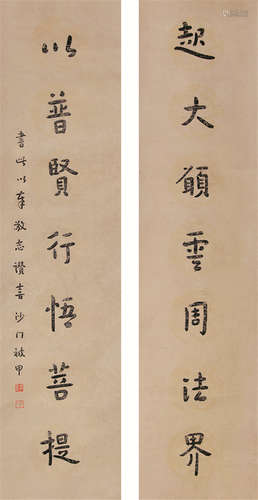 起大願雲周法界
以普賢行悟菩提
書此以奉敬志讚喜 沙门被甲